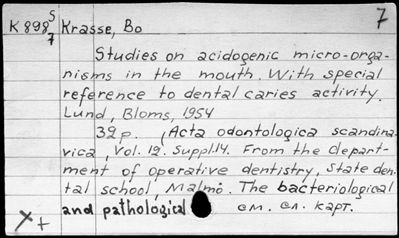 7
K898 5/7 Krasse, Bo
Studies on acidogenic micro-orga-
nisms in the mouth. With special
reference to dental caries activity.
Lund, Bloms, 1954
39p. (Acta odontologica scandina-
vica, Vol. 12. Suppl.14. From the depart-
ment of operative dentistry, State den-
tal school, Malmö. The bacteriological
and pathological см. сл. карт.